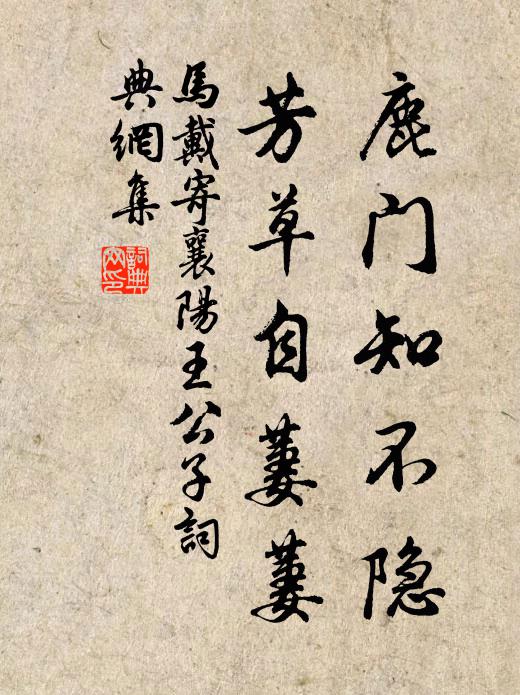 鹿门知不隐
芳草自萋萋
馬戴寄襄陽王公子詞
典網集
詞典